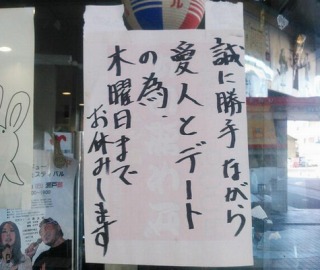 誠に勝手ながら
愛人とデート
の為.
木曜日まで
お休みします